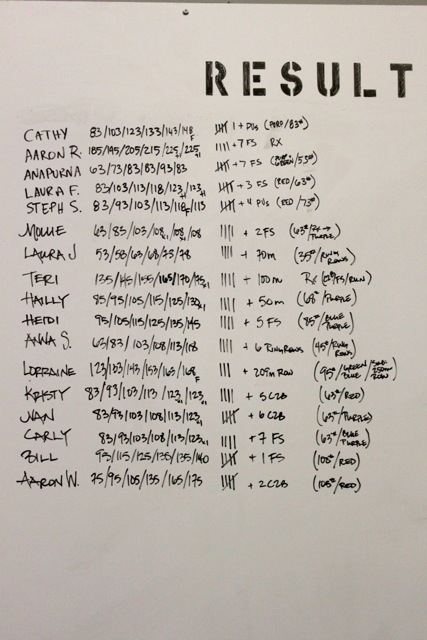 RESULT
CATHY 83/103/123/133/143/148F 𝍸 1 + PUs (PURP/83#)
AARON R. 185/195/205/215/225x1/225x1 |||| +7 FS RX
ANAPURNA 63/73/83/83/93/83 𝍸 +7 FS (GREEN/55#)
LAURA F. 83/103/113/118/123x1/123x1 𝍸 + 3 FS (RED/63#)
STEPH S. 83/93/103/113/118F/113 𝍸 + 4 PUs (RED/73#)
MOLLIE 63/83/103/108x1/108x1/108 |||| + 2FS (63#/ PURPLE)
LAURA J 53/58/63/68/73/78 |||| + 70m (35#/RING ROWS)
TERI 135/145/155/165/170/175x1 |||| + 100m RX (/FS/RUN)
HAILLY 85/95/105/115/125/130x1 |||| + 50m (68#/PURPLE)
HEIDI 95/105/115/125/135/145 |||| + 5 FS (85#/BLUE PURPLE)
ANNA S. 63/83/103/108/113/118 |||| + 6 RING ROWS (45#/RING ROWS)
LORRAINE 123/133/143/153/163/168F ||| + 209m ROW (95#/GREEN BLUE/ 250m ROW)
KRISTY 83/93/103/113/123x1/123x1 |||| + 5 C2B (63#/RED)
JUAN 83/93/103/108/113/123x1 𝍸 + 6 C2B (63#/PURPLE)
CARLY 83/93/103/108/113/123x1 |||| + 7 FS (63#/BLUE PURPLE)
BILL 95/115/125/135/135/140 𝍸 + 1 FS (105#/RED)
AARON W. 75/95/105/135/165/175 𝍸 + 2 C2B (105#/RED)